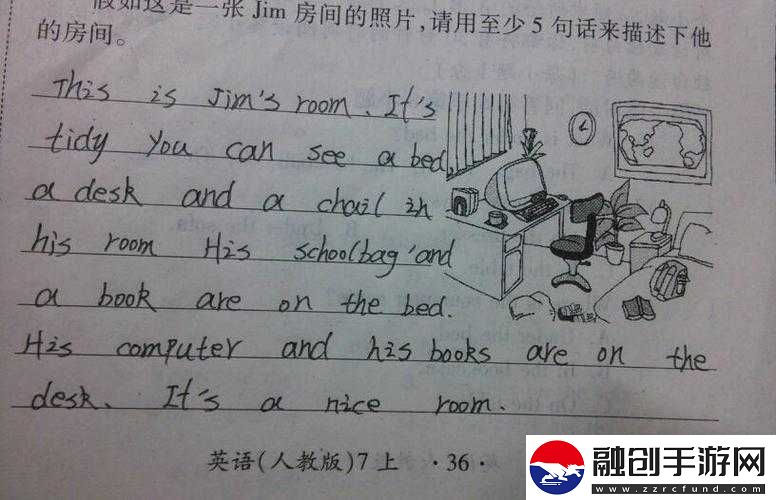 假如这是一张 Jim 房间的照片,请用至少 5 句话来描述下他
的房间。
This is Jim's room. It's
tidy You can see a bed,
a desk and a chail in
his room His schoolbag and
a book are on the bed.
His computer and his books are on the
desk. It's a nice room.
英语(人教版)7 上 ·36·
融创手游网
www.zzrcfund.com